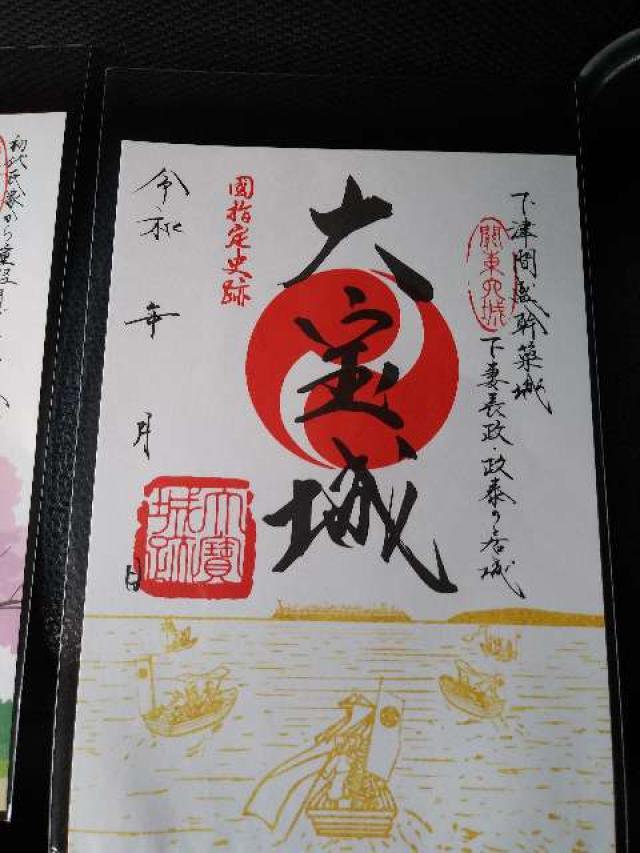 下津間盛幹築城
關東六城
下妻長政・政泰の居城
大宝城
國指定史跡
令和 年 月 日
大寶
城跡
初代氏家から重臣